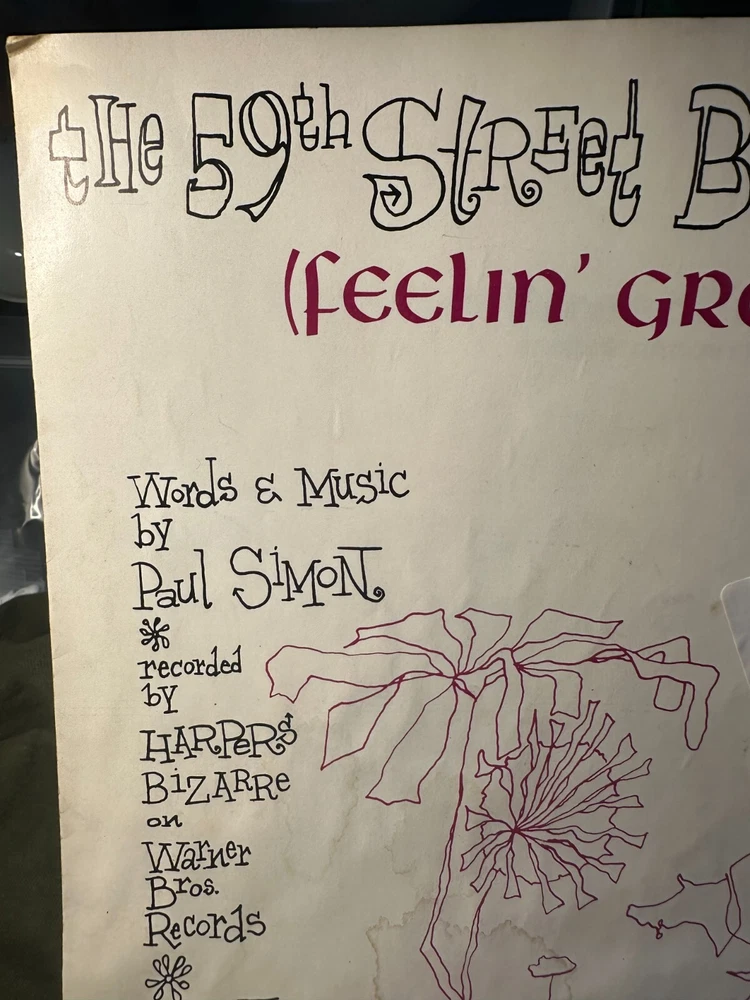 the 59th Street B
(feelin' GR
Words & Music
by
Paul Simon
recorded
by
HARPERS
BiZARRe
on
Warner
Bros.
Records